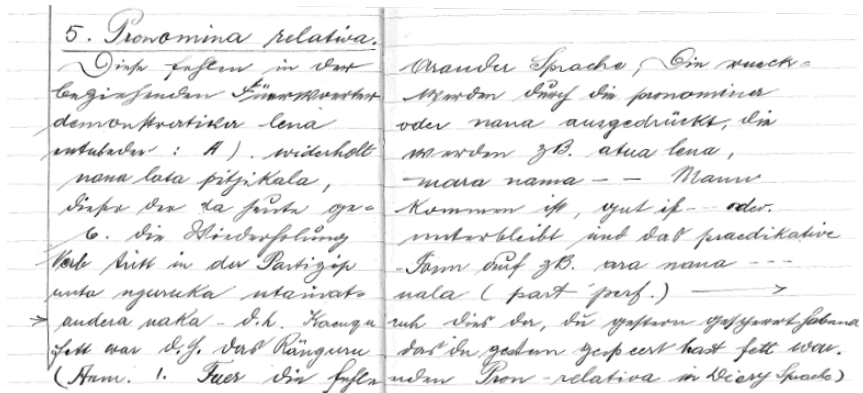 5. Pronomina relativa.
Diese fehlen in der Arander Sprache, Die rueck-
beziehenden Fürwoerter werden durch die pronomina
demonstrativa lena oder nana ausgedrückt, die
entweder : A). widerholt werden zB. atua lena,
nana lata pitjikala, mara nama - - Mann
dieser der da heute ge= kommen ist, gut ist - - oder.
6. die Wiederholung unterbleibt und das praedikative
Verb tritt in der Partizip -Form auf zB. ara nana - - -
unta nguruka ntainat= nala (part perf.) →
→ andera naka - d.h. Kaenguruh dies der, du gestern gespeert habend
fett war d.h. das Känguru das du gestern gespeert hast fett war.
(Anm. 1. Fuer die fehlenden Pron - relativa in Diery Sprache)